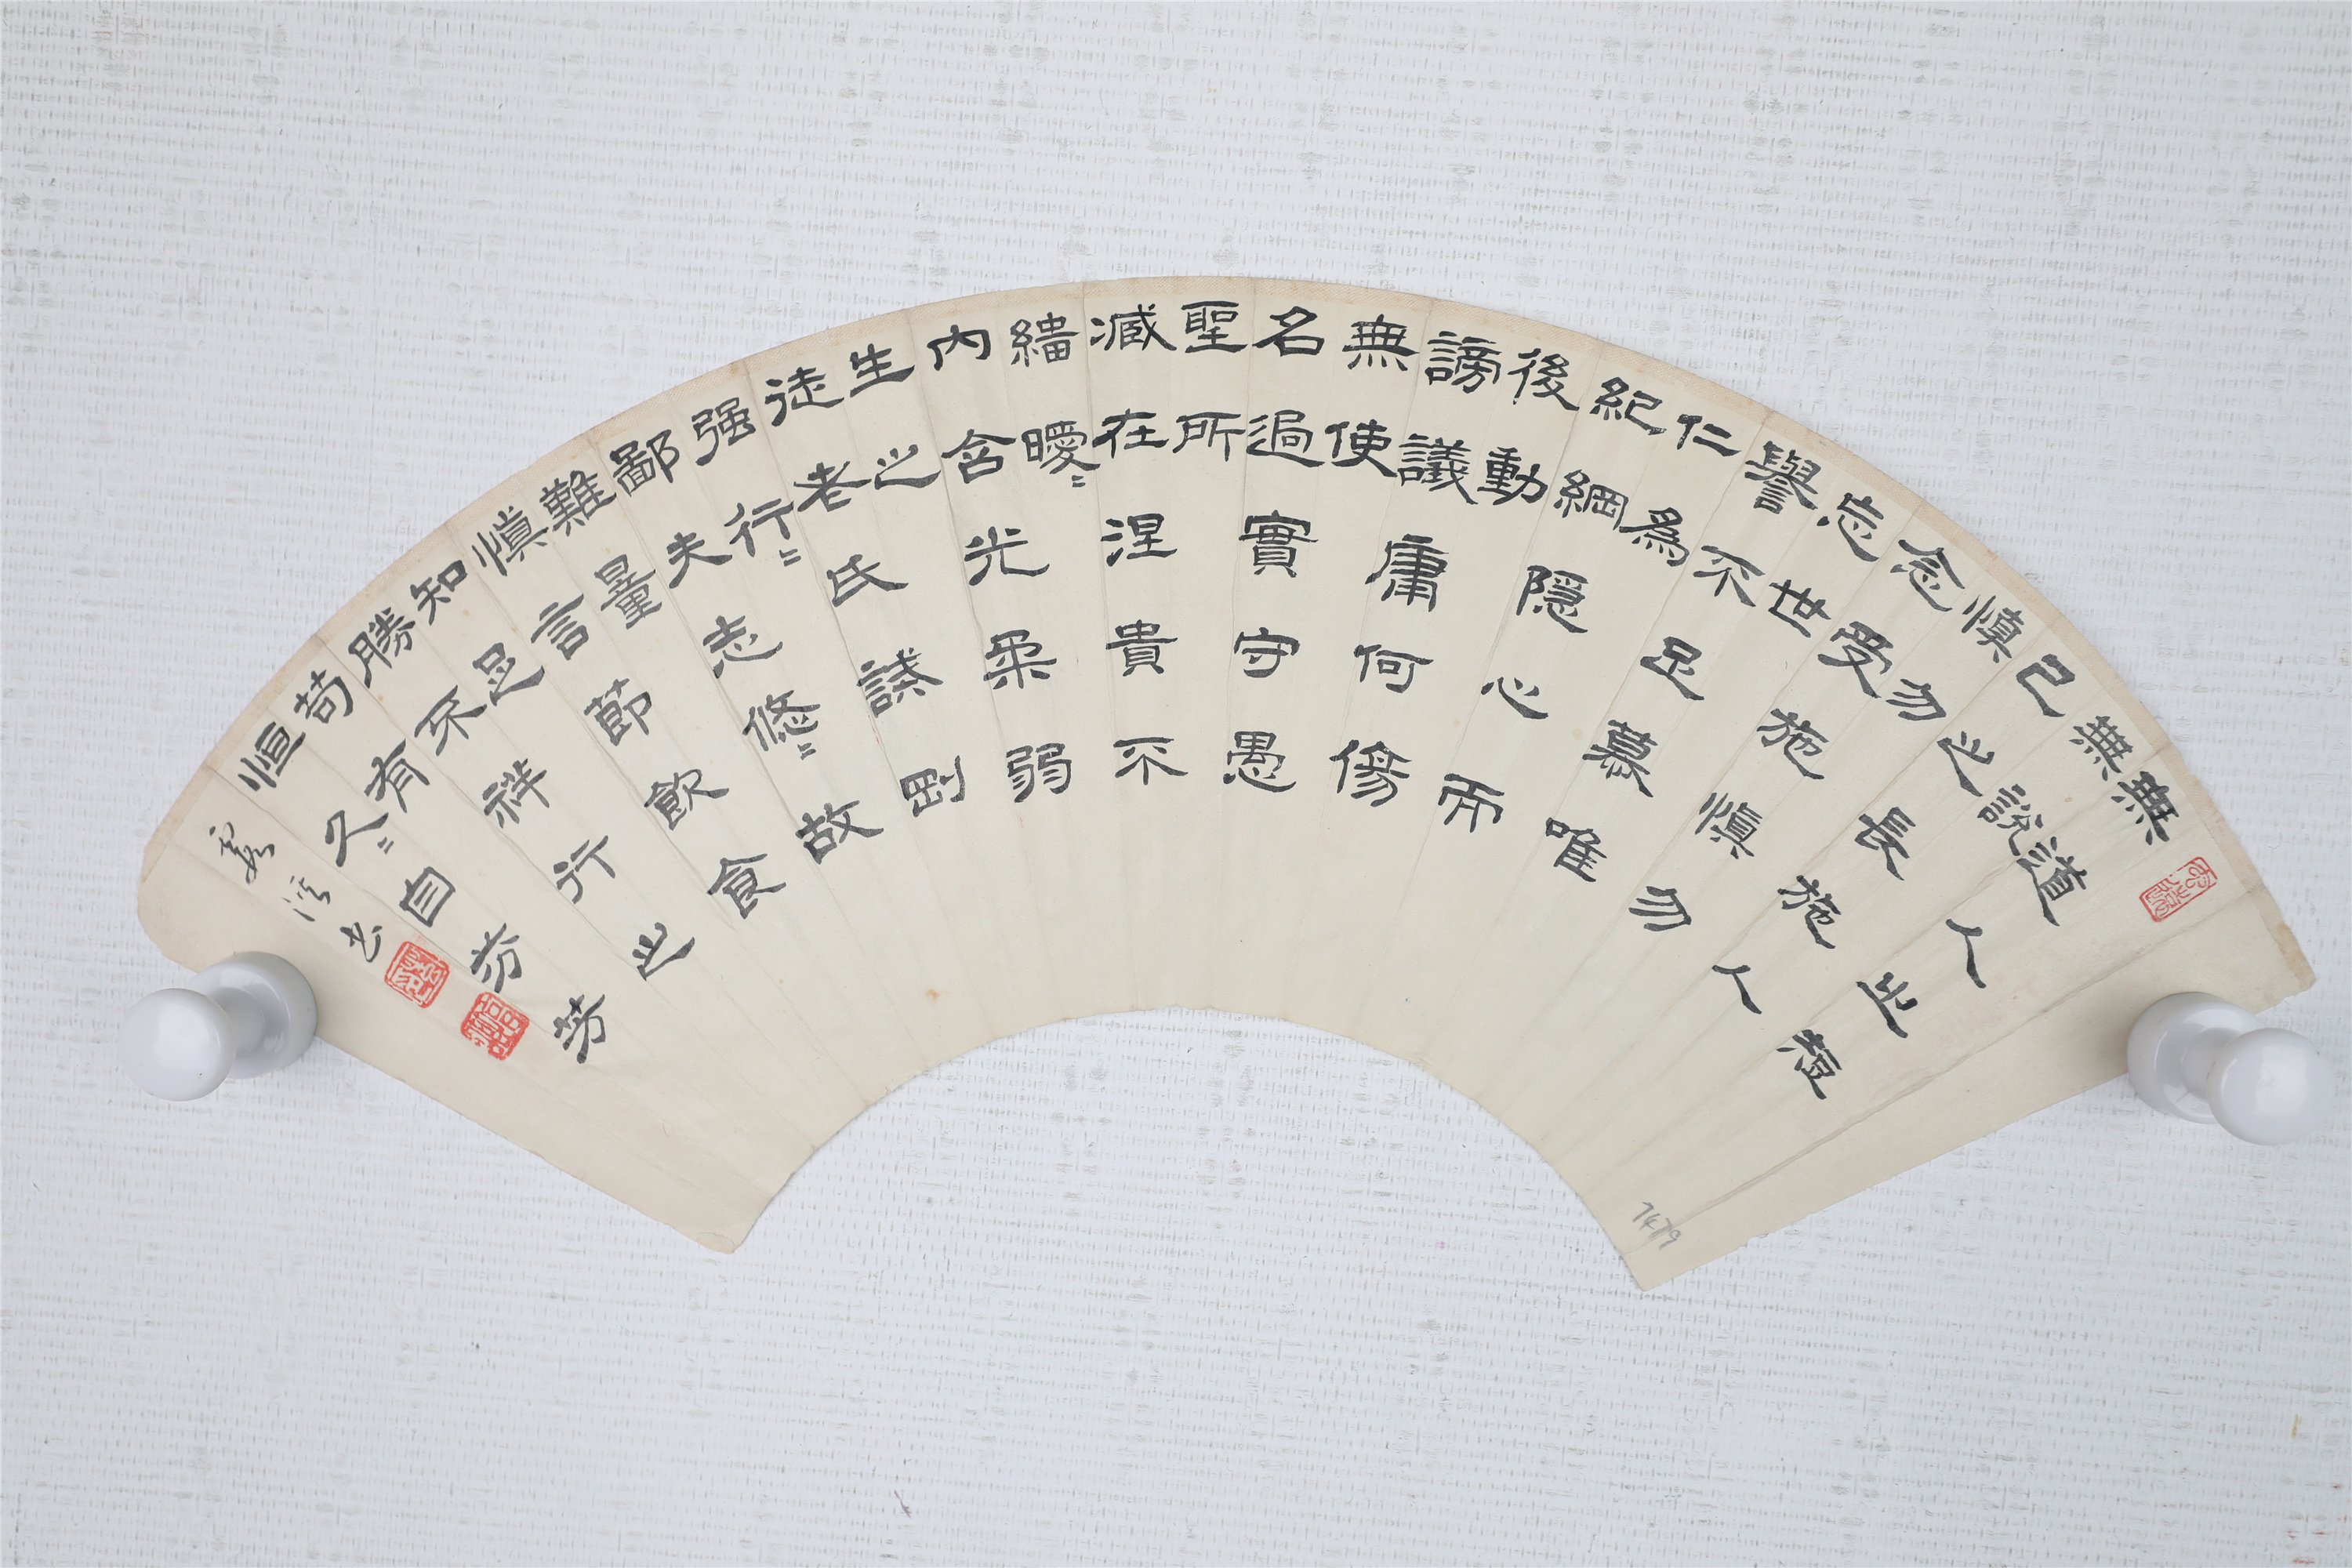 無道人之短
無說
己之長施人
慎勿
念受施慎勿
忘世
譽不足慕唯
仁為
紀綱隱心而
後動
謗議庸何傷
無使
名過實守愚
聖所
臧在涅貴不
緇曖〻
內含光柔弱
生之
徒老氏誡剛
强行〻
鄙夫志悠〻故
難量
慎言節飲食
知足
勝不祥行之
苟有
恒久〻自芬芳
7479